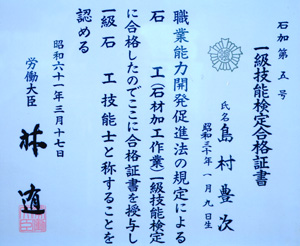 石加第五号
一級技能検定合格証書
氏名 島村豊次
昭和三十年一月九日生
職業能力開発促進法の規定による
石工(石材加工作業)一級技能検定
に合格したのでここに合格証書を授与し
一級石工技能士と称することを
認める
昭和六十一年三月十七日
労働大臣 林 逎